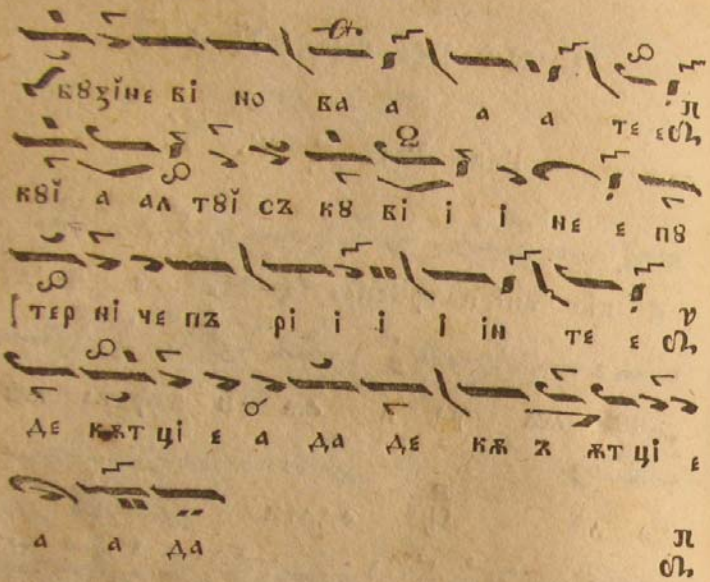 кꙋзіне ві но ва а а а те е
кꙋй а ал тꙋй съ кꙋ ві і і не е пꙋ
тер ні че пъ рі і і і ін те е
де кѫт ці е а да де кѫ ъ ѫт ці е
а а да